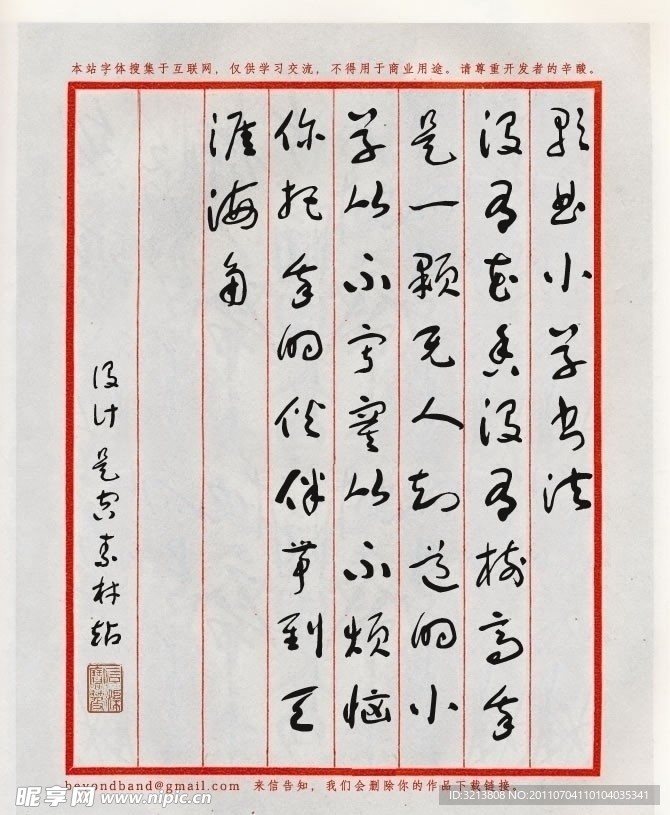 本站字体搜集于互联网，仅供学习交流，不得用于商业用途。请尊重开发者的辛酸。
小草书法
没有花香没有树高我
是一颗无人知道的小
草从不寂寞从不烦恼
你把我的伙伴带到天
涯海角
设计是素材站
beyondband@gmail.com 来信告知，我们会删除你的作品下载链接。
昵享网 www.nipic.cn
ID:3213808 NO:20110704110104035341